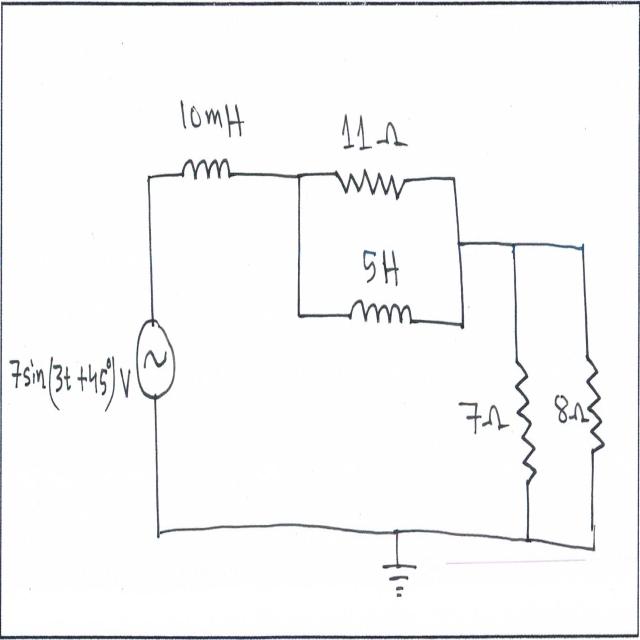 10mH
11Ω
5H
7sin(3t+45°)V
7Ω
8Ω